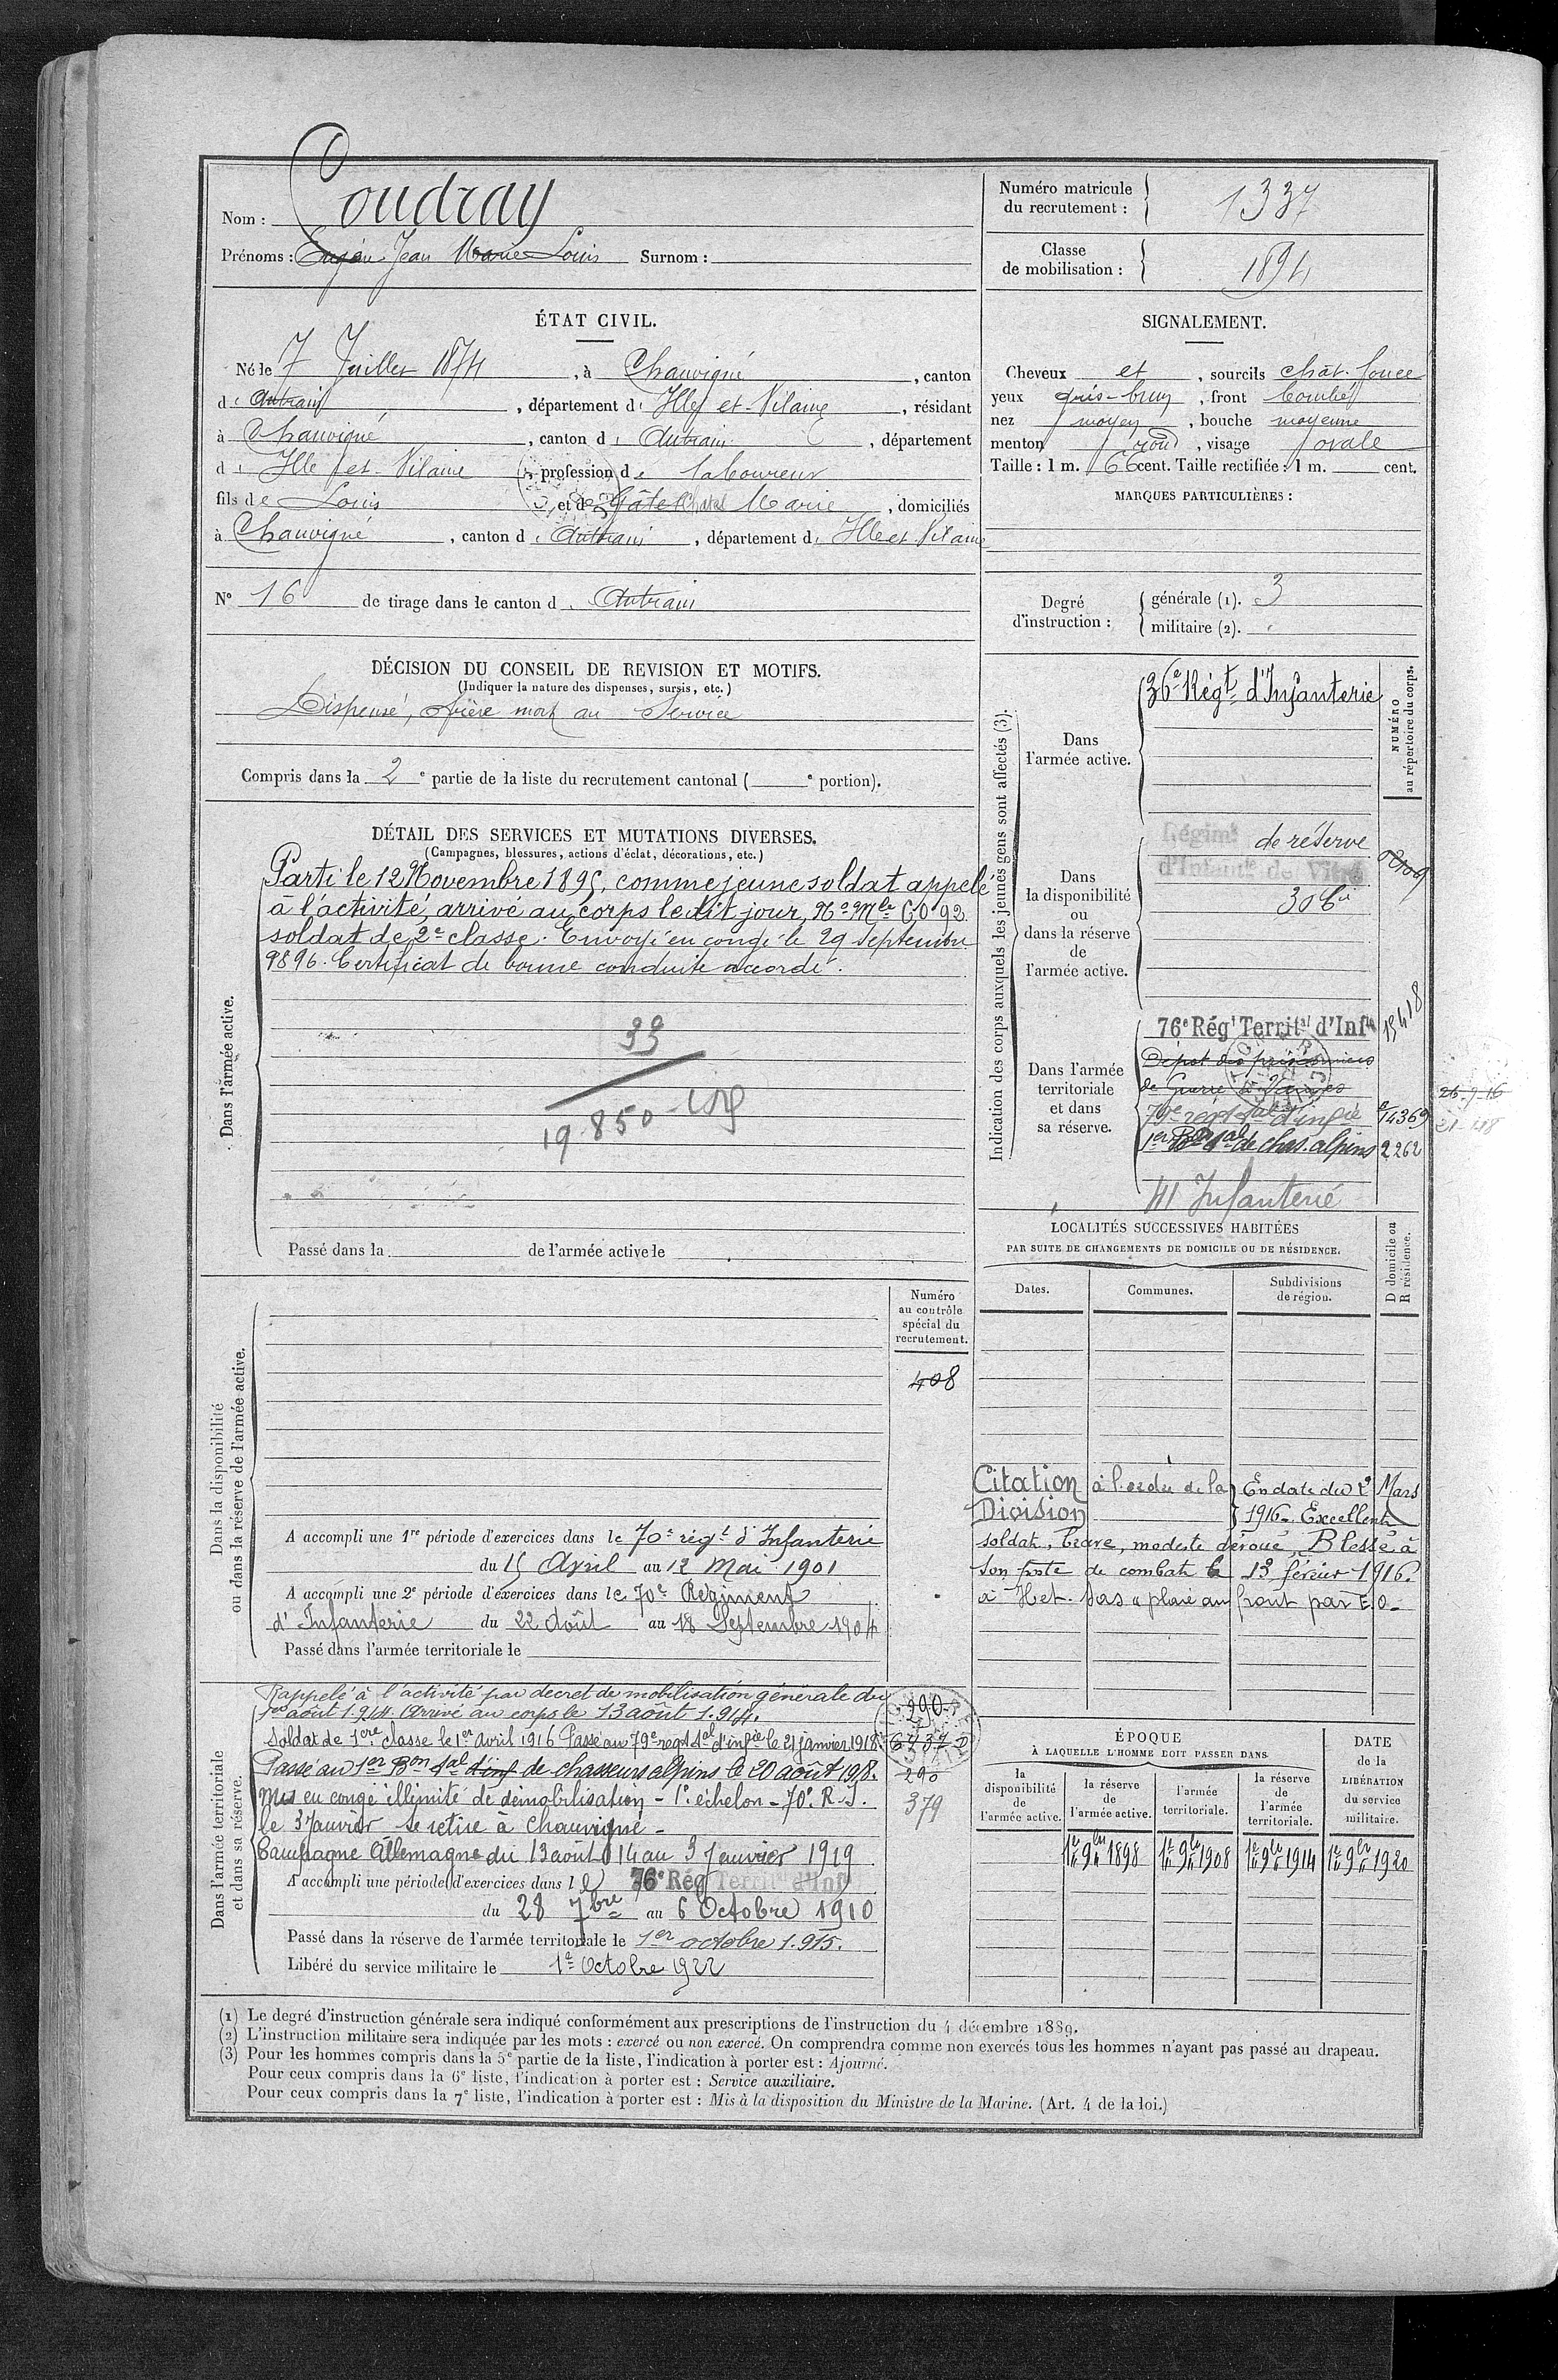 Nom : Coudray
Prénoms : Eugène Jean Marie Louis Surnom :
Numéro matricule du recrutement : 1337
Classe de mobilisation : 1894
ÉTAT CIVIL.
Né le 7 Juillet 1874, à Chauvigné, canton
d' Antrain, département d' Ille et-Vilaine, résidant
à Chauvigné, canton d' Antrain, département
d' Ille et-Vilaine profession de laboureur
fils de Louis et de Gâtel Chatel Marie, domiciliés
à Chauvigné, canton d' Antrain, département d' Ille et Vilaine
N° 16 de tirage dans le canton d' Antrain
SIGNALEMENT.
Cheveux et, sourcils chât. foncé
yeux gris-brun, front bombé
nez moyen, bouche moyenne
menton rond, visage ovale
Taille : 1 m. 66 cent. Taille rectifiée : 1 m. cent.
MARQUES PARTICULIÈRES :
Degré d'instruction :
générale (1). 3
militaire (2).
DÉCISION DU CONSEIL DE REVISION ET MOTIFS.
(Indiquer la nature des dispenses, sursis, etc.)
Dispensé, frère mort au Service
Compris dans la 2e partie de la liste du recrutement cantonal ( e portion).
DÉTAIL DES SERVICES ET MUTATIONS DIVERSES.
(Campagnes, blessures, actions d'éclat, décorations, etc.)
Dans l'armée active.
Parti le 12 Novembre 1895, comme jeune soldat appelé
à l'activité, arrivé au corps le dit jour, No Mle 6092
soldat de 2e classe. Envoyé en congé le 29 Septembre
1896. Certificat de bonne conduite accordé.
33
19.850
Passé dans la de l'armée active le
Indication des corps auxquels les jeunes gens sont affectés (3).
NUMÉRO au répertoire du corps.
Dans l'armée active.
36e Régt d'Infanterie
Dans la disponibilité ou dans la réserve de l'armée active.
Régimt de réserve
d'Infantie de Vitré
Dans l'armée territoriale et dans sa réserve.
76e Régt Territal d'Infie 15418
Dépôt des prisonniers
de Guerre
26-9-16
79e regt tal d'infie 14369
1er Bon tal de chas. alpins 2262
41 Infanterie
LOCALITÉS SUCCESSIVES HABITÉES
PAR SUITE DE CHANGEMENTS DE DOMICILE OU DE RÉSIDENCE.
D domicile ou R résidence.
Dates. Communes. Subdivisions de région.
Citation à l'ordre de la Division En date du 2 Mars
1916. Excellent
soldat, brave, modeste dévoué, Blessé à
son poste de combat le 13 février 1916.
Dans la disponibilité ou dans la réserve de l'armée active.
Numéro au contrôle spécial du recrutement.
408
A accompli une 1re période d'exercices dans le 70e régt d'Infanterie
du 15 Avril au 12 Mai 1901
A accompli une 2e période d'exercices dans le 70e Régiment
d'Infanterie du 22 Août au 18 Septembre 1904
Passé dans l'armée territoriale le
Dans l'armée territoriale et dans sa réserve.
Rappelé à l'activité par decret de mobilisation générale du
1er août 1.914. Arrivé au corps le 13 août 1.914.
Soldat de 1ère classe le 1er avril 1916 Passé au 79e regt tal d'infie le 21 janvier 1918
Passé au 1er Bon tal d'inf de chasseurs alpins le 20 août 1918.
Mis en congé illimité de démobilisation - 1e échelon - 70e R.I.
le 3 Janvier se retire à Chauvigné -
Campagne Allemagne du 13 août 14 au 3 Janvier 1919
A accompli une période d'exercices dans le 76e Rég Territal d'Inf
du 28 7bre au 6 Octobre 1910
Passé dans la réserve de l'armée territoriale le 1er octobre 1.915.
Libéré du service militaire le 1er Octobre 1922
290
6437
290
379
ÉPOQUE À LAQUELLE L'HOMME DOIT PASSER DANS
la disponibilité de l'armée active. la réserve de l'armée active. l'armée territoriale. la réserve de l'armée territoriale.
DATE de la LIBÉRATION du service militaire.
1er 9bre 1898 1er 9bre 1908 1er 9bre 1914 1er 9bre 1920
(1) Le degré d'instruction générale sera indiqué conformément aux prescriptions de l'instruction du 4 décembre 1889.
(2) L'instruction militaire sera indiquée par les mots : exercé ou non exercé. On comprendra comme non exercés tous les hommes n'ayant pas passé au drapeau.
(3) Pour les hommes compris dans la 5e partie de la liste, l'indication à porter est : Ajourné.
Pour ceux compris dans la 6e liste, l'indication à porter est : Service auxiliaire.
Pour ceux compris dans la 7e liste, l'indication à porter est : Mis à la disposition du Ministre de la Marine. (Art. 4 de la loi.)